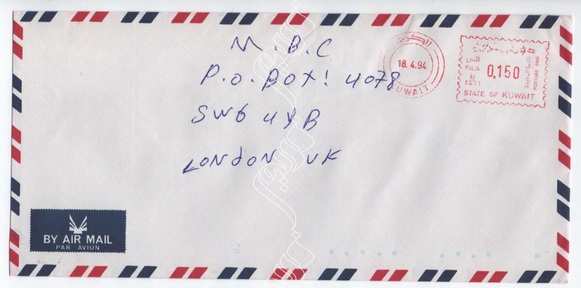 M.B.C
P.O.BOX! 4078
SW6 4YB
LONDON UK
18.4.94
KUWAIT
0,150
STATE OF KUWAIT
BY AIR MAIL
PAR AVION